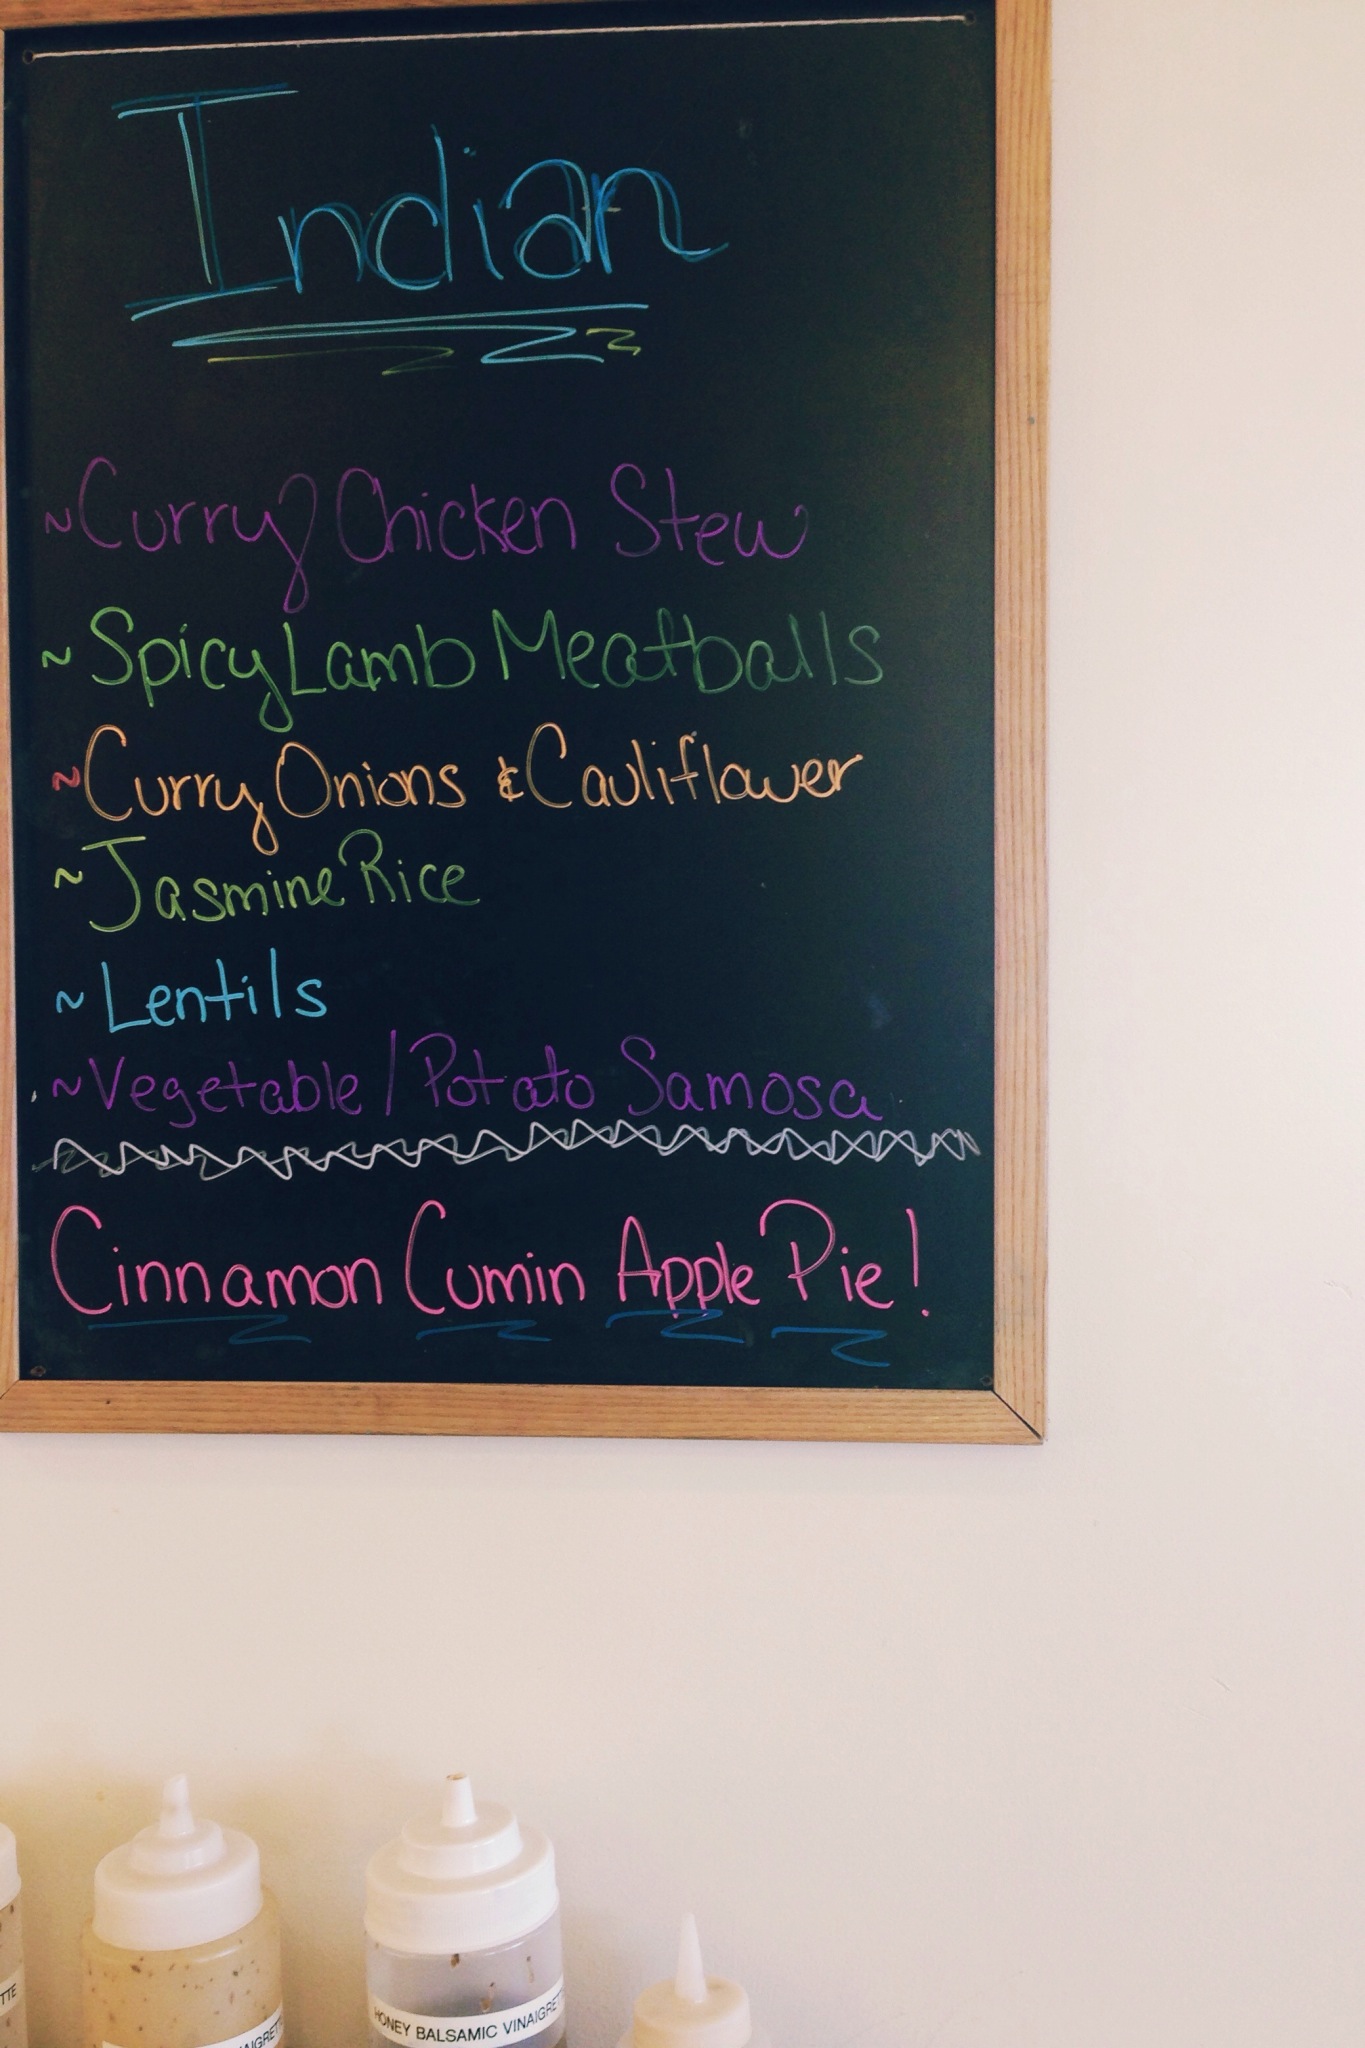 Indian
~Curry Chicken Stew
~Spicy Lamb Meatballs
~Curry Onions & Cauliflower
~Jasmine Rice
~Lentils
~Vegetable/Potato Samosa
Cinnamon Cumin Apple Pie!
HONEY BALSAMIC VINAIGRET